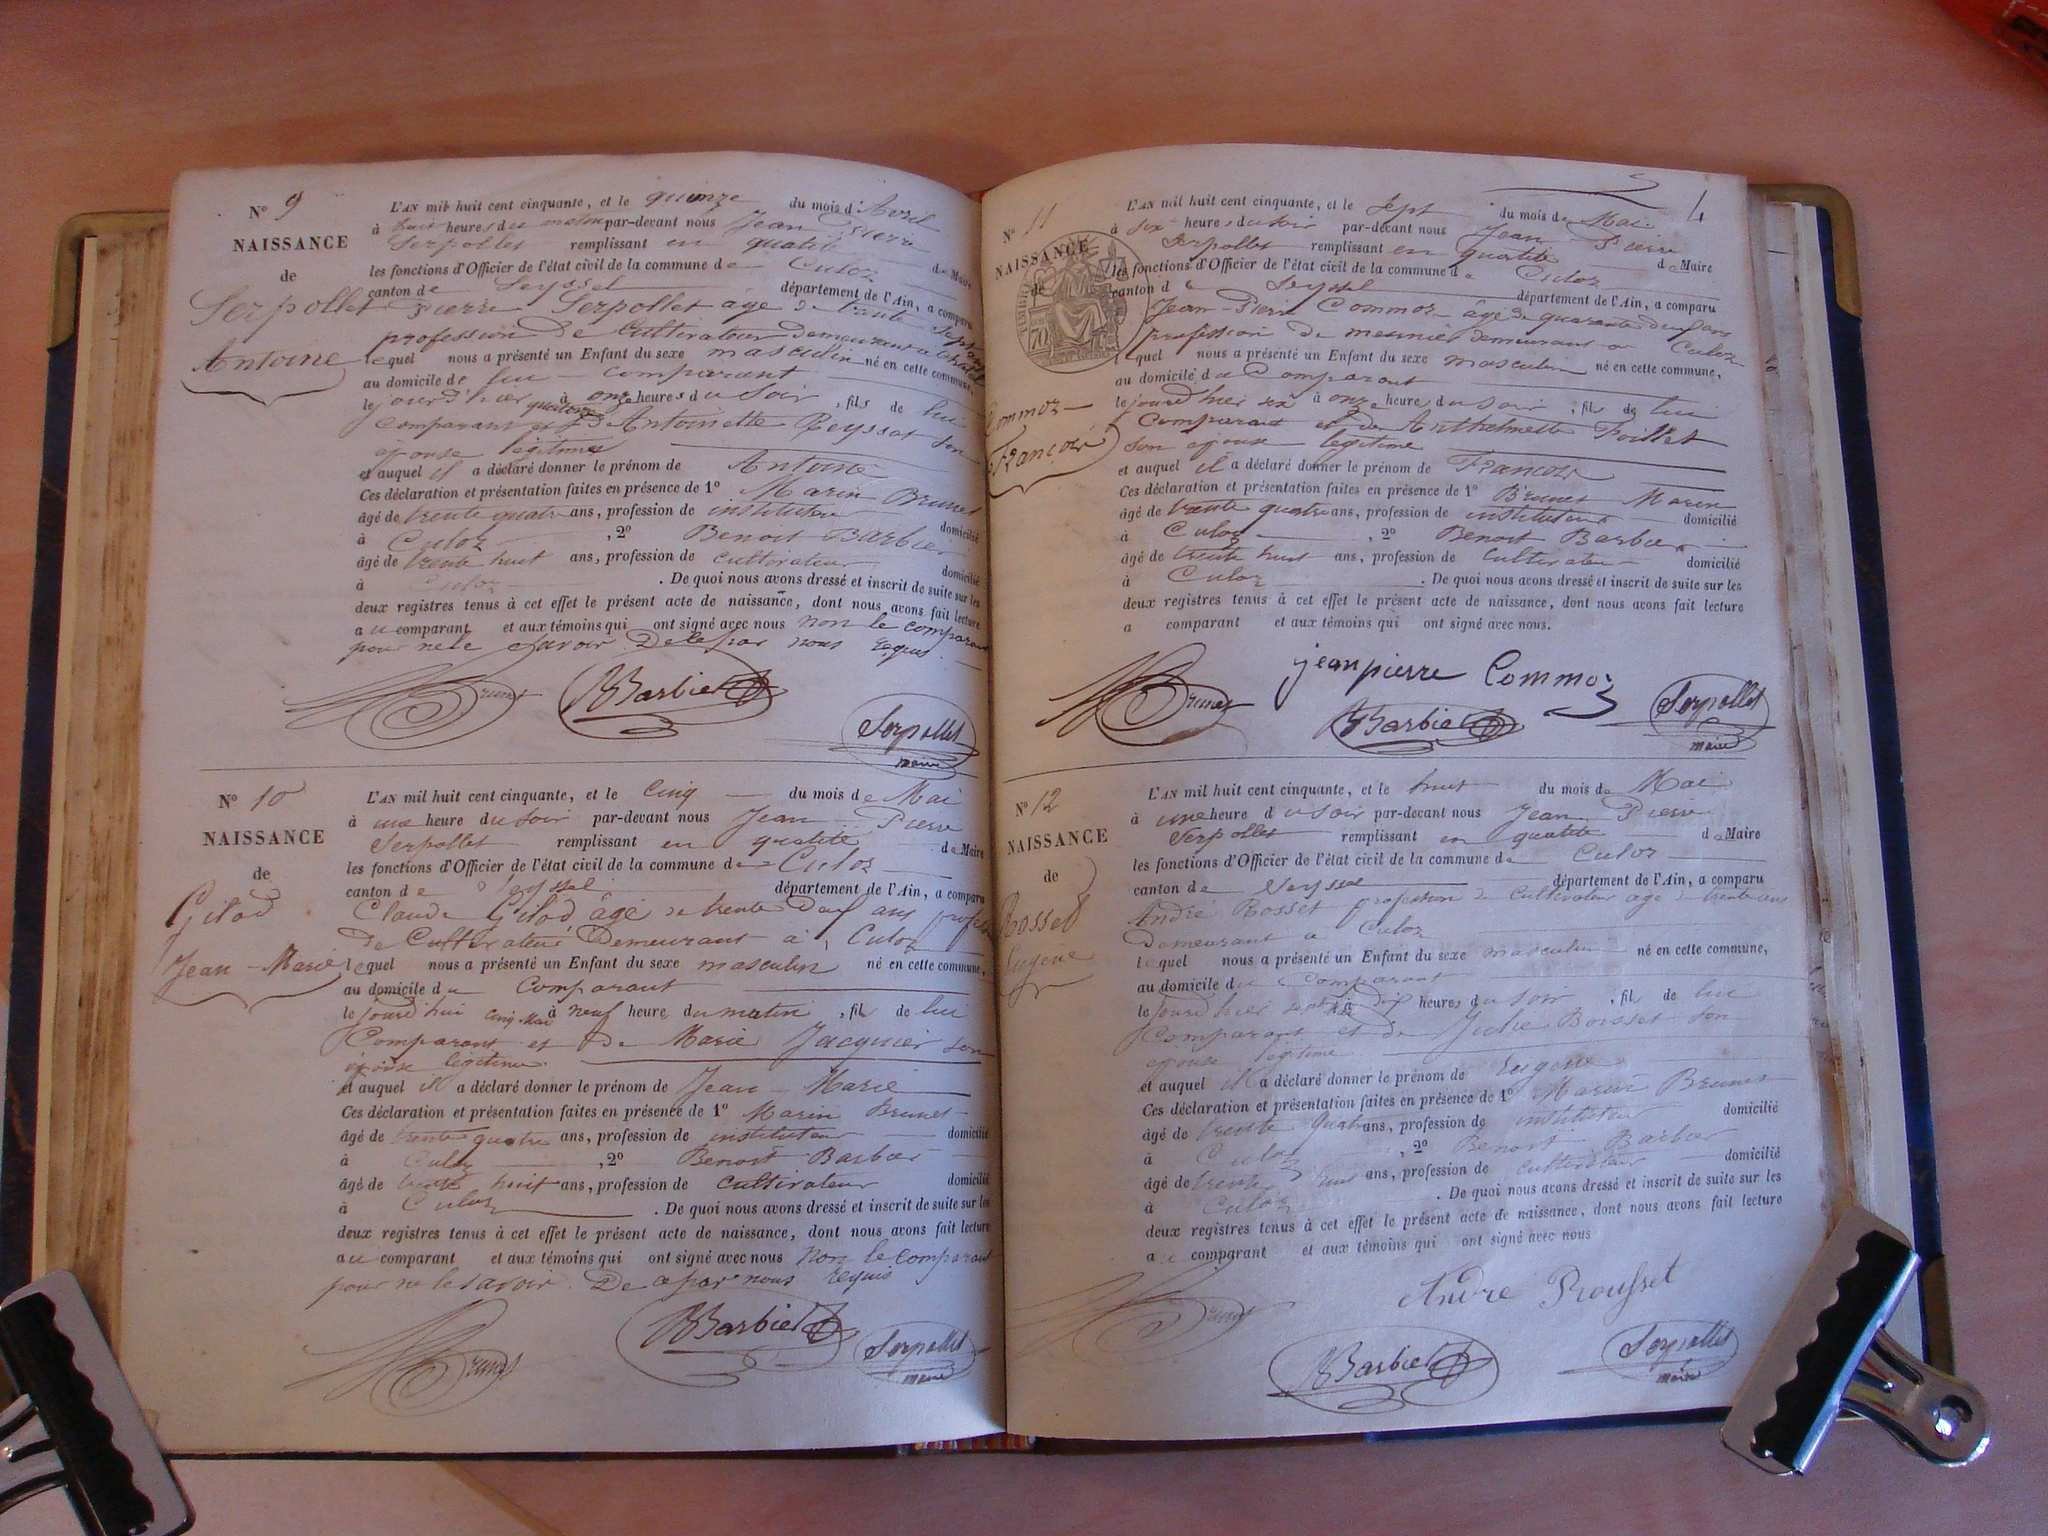 N° 9
NAISSANCE
de
Serpollet
Antoine
L'AN mil huit cent cinquante, et le quinze du mois d'Avril
à huit heures du matin par-devant nous Jean Pierre
Serpollet remplissant en qualité de Maire
les fonctions d'Officier de l'état civil de la commune de Culoz
canton de Seyssel département de l'Ain, a comparu
Pierre Serpollet âgé de trente sept ans
profession de Cultivateur demeurant à
lequel nous a présenté un Enfant du sexe masculin né en cette commune,
au domicile de lui comparant
le jourd'hier quatorze à onze heures du soir, fils de lui
comparant et d'Antoinette Reyssat son
épouse légitime
et auquel il a déclaré donner le prénom de Antoine
Ces déclaration et présentation faites en présence de 1° Marin Brunet
âgé de trente quatre ans, profession de instituteur domicilié
à Culoz, 2° Benoit Barbier
âgé de trente huit ans, profession de cultivateur domicilié
à Culoz. De quoi nous avons dressé et inscrit de suite sur les
deux registres tenus à cet effet le présent acte de naissance, dont nous avons fait lecture
au comparant et aux témoins qui ont signé avec nous non le comparant
pour ne le savoir De ce par nous requis
Brunet
Barbier
Serpollet
maire
N° 10
NAISSANCE
de
Gilod
Jean-Marie
L'AN mil huit cent cinquante, et le Cinq du mois de Mai
à une heure du soir par-devant nous Jean Pierre
Serpollet remplissant en qualité de Maire
les fonctions d'Officier de l'état civil de la commune de Culoz
canton de Seyssel département de l'Ain, a comparu
Claude Gilod âgé de trente deux ans profession
de Cultivateur Demeurant à Culoz
lequel nous a présenté un Enfant du sexe masculin né en cette commune,
au domicile du Comparant
le jourd'hui Cinq Mai à neuf heure du matin, fils de lui
Comparant et De Marie Jacquier son
épouse légitime
et auquel il a déclaré donner le prénom de Jean-Marie
Ces déclaration et présentation faites en présence de 1° Marin Brunet
âgé de trente quatre ans, profession de instituteur domicilié
à Culoz, 2° Benoit Barbier
âgé de trente huit ans, profession de cultivateur domicilié
à Culoz. De quoi nous avons dressé et inscrit de suite sur les
deux registres tenus à cet effet le présent acte de naissance, dont nous avons fait lecture
au comparant et aux témoins qui ont signé avec nous non le comparant
pour ne le savoir De ce par nous requis
Brunet
Barbier
Serpollet
maire
4
N° 11
NAISSANCE
de
Commoz
François
L'AN mil huit cent cinquante, et le Sept du mois de Mai
à six heures du soir par-devant nous Jean Pierre
Serpollet remplissant en qualité de Maire
les fonctions d'Officier de l'état civil de la commune de Culoz
canton de Seyssel département de l'Ain, a comparu
Jean-Pierre Commoz âgé de quarante deux ans
profession de meunier demeurant à Culoz
lequel nous a présenté un Enfant du sexe masculin né en cette commune,
au domicile du Comparant
le jourd'hier six à onze heure du soir, fils de lui
Comparant et de Anthelmette Poillet
son épouse légitime
et auquel il a déclaré donner le prénom de François
Ces déclaration et présentation faites en présence de 1° Brunet Marin
âgé de trente quatre ans, profession de instituteur domicilié
à Culoz, 2° Benoit Barbier
âgé de trente huit ans, profession de Cultivateur domicilié
à Culoz. De quoi nous avons dressé et inscrit de suite sur les
deux registres tenus à cet effet le présent acte de naissance, dont nous avons fait lecture
a comparant et aux témoins qui ont signé avec nous.
jean pierre Commoz
Brunet
Barbier
Serpollet
maire
N° 12
NAISSANCE
de
Rosset
Eugène
L'AN mil huit cent cinquante, et le huit du mois de Mai
à une heure du soir par-devant nous Jean Pierre
Serpollet remplissant en qualité de Maire
les fonctions d'Officier de l'état civil de la commune de Culoz
canton de Seyssel département de l'Ain, a comparu
André Rosset profession de Cultivateur âgé de trente ans
Demeurant à Culoz
lequel nous a présenté un Enfant du sexe masculin né en cette commune,
au domicile du Comparant
le jourd'hier sept à dix heures du soir, fils de lui
Comparant et de Julie Boisset son
épouse légitime
et auquel il a déclaré donner le prénom de Eugène
Ces déclaration et présentation faites en présence de 1° Marin Brunet
âgé de trente quatre ans, profession de instituteur domicilié
à Culoz, 2° Benoit Barbier
âgé de trente huit ans, profession de cultivateur domicilié
à Culoz. De quoi nous avons dressé et inscrit de suite sur les
deux registres tenus à cet effet le présent acte de naissance, dont nous avons fait lecture
au comparant et aux témoins qui ont signé avec nous
André Rousset
Brunet
Barbier
Serpollet
maire